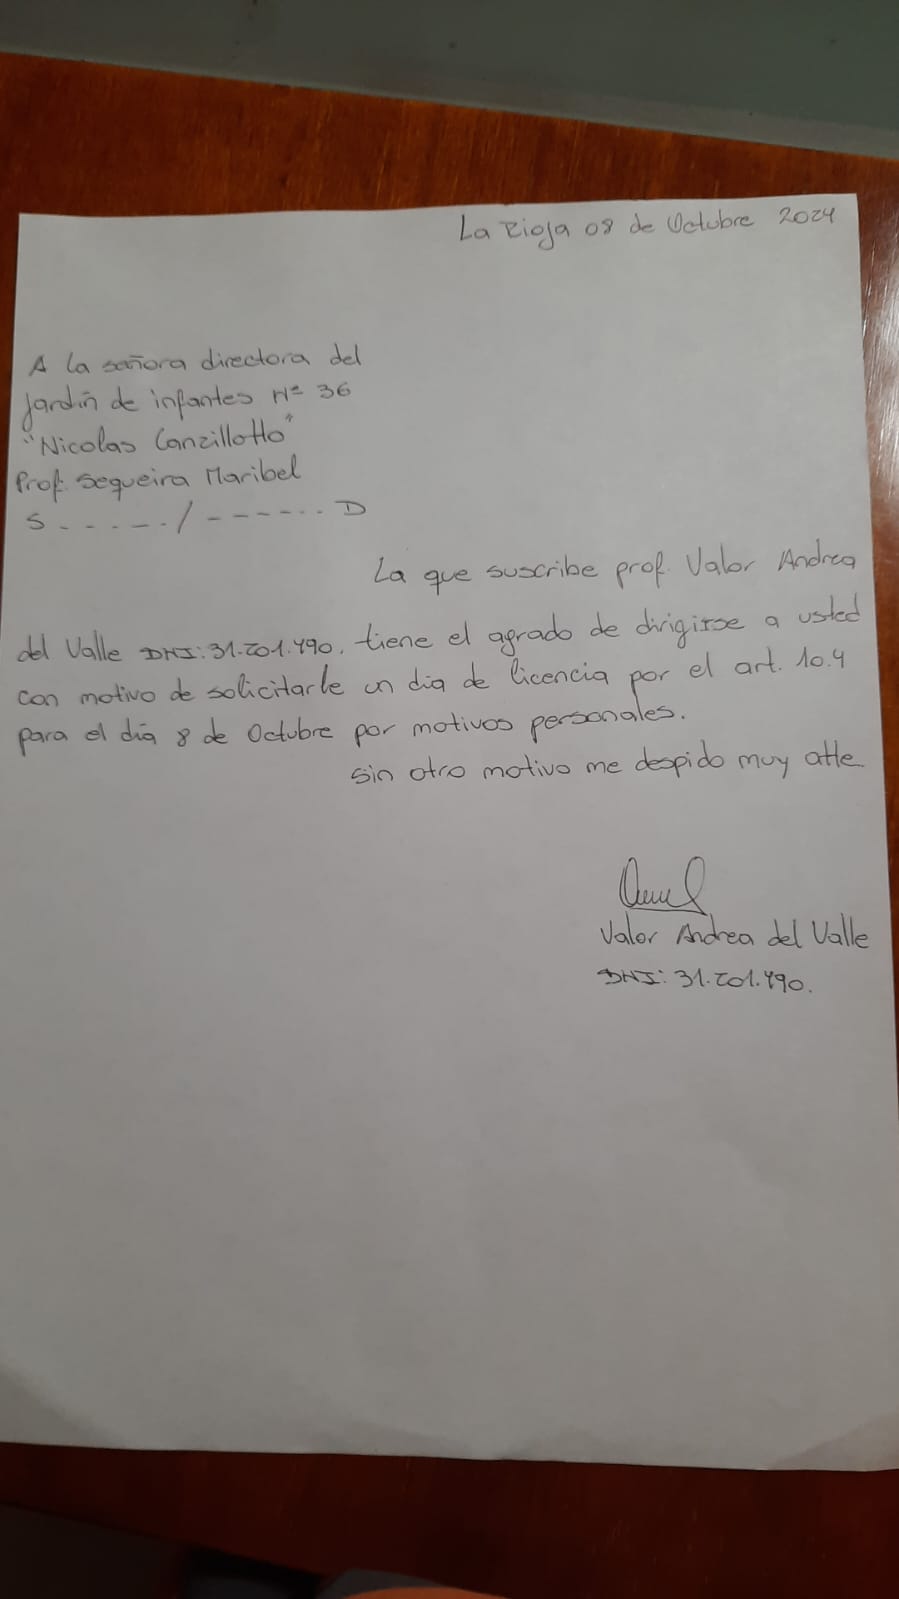 La Rioja 08 de Octubre 2024
A la sañora directora del
Jardín de infantes Nº 36
"Nicolas Canzillotto"
Prof: Sequeira Maribel
S - - - - - . / - - - - - - . . D
La que suscribe prof. Valor Andrea
del Valle DNI: 31.201.490. tiene el agrado de dirigirse a usted
con motivo de solicitarle un dia de licencia por el art. 10.4
para el día 8 de Octubre por motivos personales.
sin otro motivo me despido muy atte.
Valor Andrea del Valle
DNI: 31.201.490.